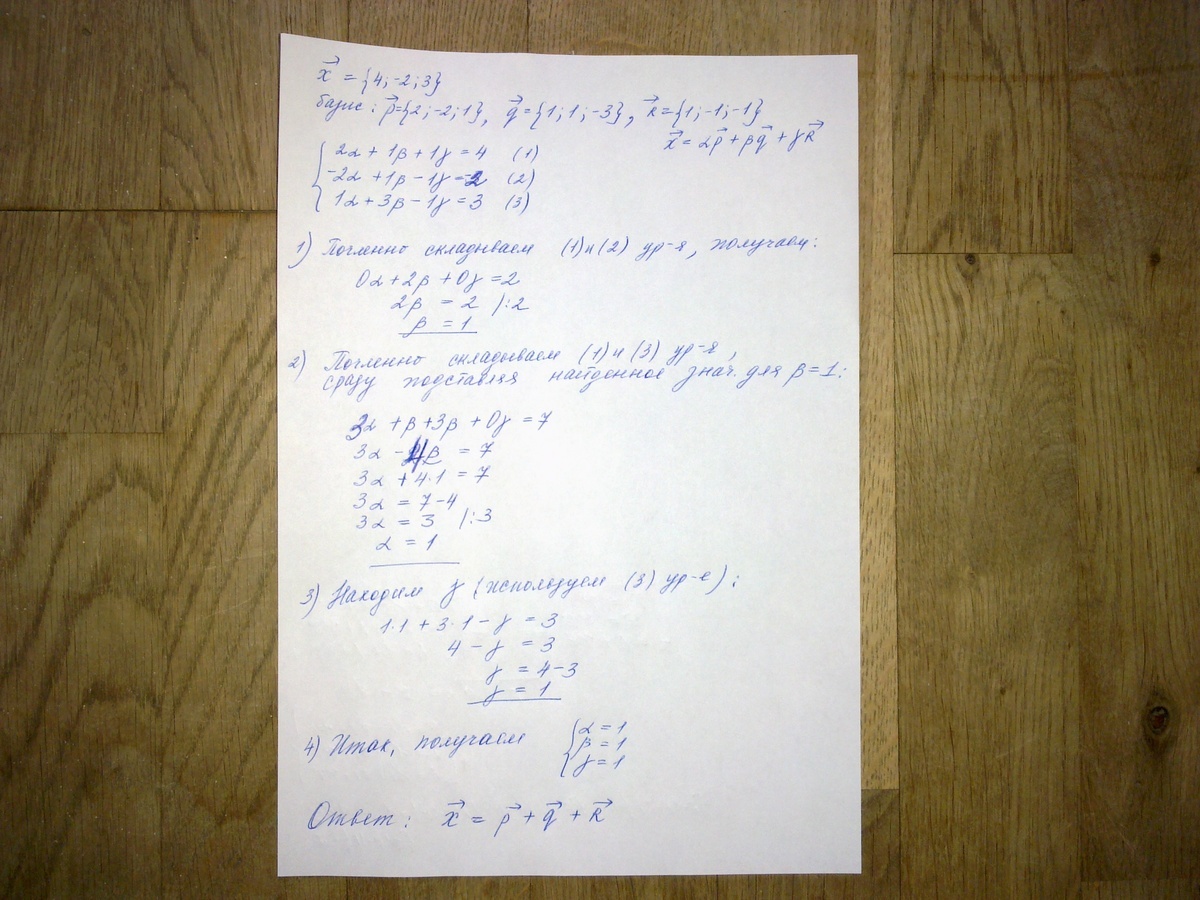 x⃗ = {4; -2; 3}
базис: p⃗={2; -2; 1}, q⃗={1; 1; -3}, R⃗={1; -1; -1}
x⃗ = αp⃗ + βq⃗ + γR⃗
2α + 1β + 1γ = 4 (1)
-2α + 1β - 1γ = -2 (2)
1α + 3β - 1γ = 3 (3)
1) Почленно складываем (1) и (2) ур-я, получаем:
0α + 2β + 0γ = 2
2β = 2 /:2
β = 1
2) Почленно складываем (1) и (3) ур-я,
сразу подставляя найденное знач. для β = 1:
3α + β + 3β + 0γ = 7
3α - 4β = 7
3α + 4·1 = 7
3α = 7-4
3α = 3 /:3
α = 1
3) Находим γ (используем (3) ур-е):
1·1 + 3·1 - γ = 3
4 - γ = 3
γ = 4-3
γ = 1
4) Итак, получаем
α = 1
β = 1
γ = 1
Ответ: x⃗ = p⃗ + q⃗ + R⃗